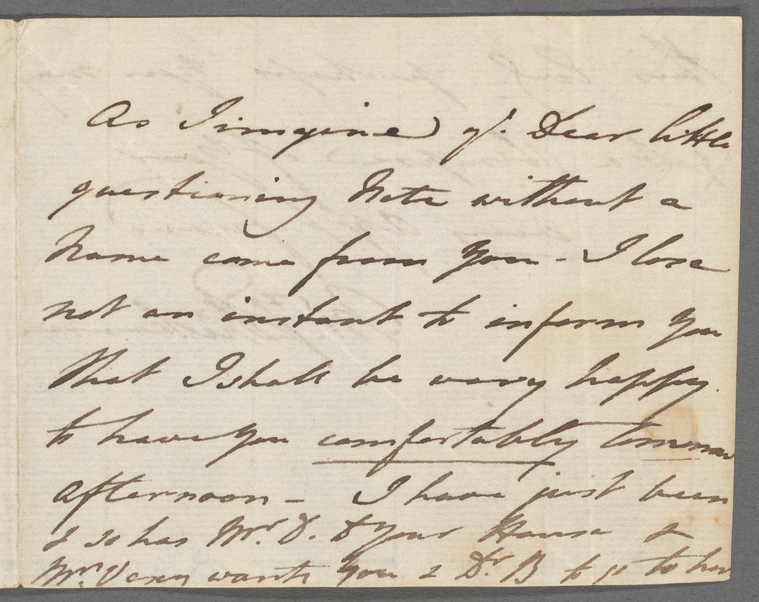 As I imagine yr. Dear little
questioning Note without a
Name came from you - I lose
not an instant to inform you
that I shall be very happy
to have you comfortably Tomorrow
afternoon - I have just been
& so has Mrs. D. to your House &
Mrs Vesey wants you & Dr. B to go to her